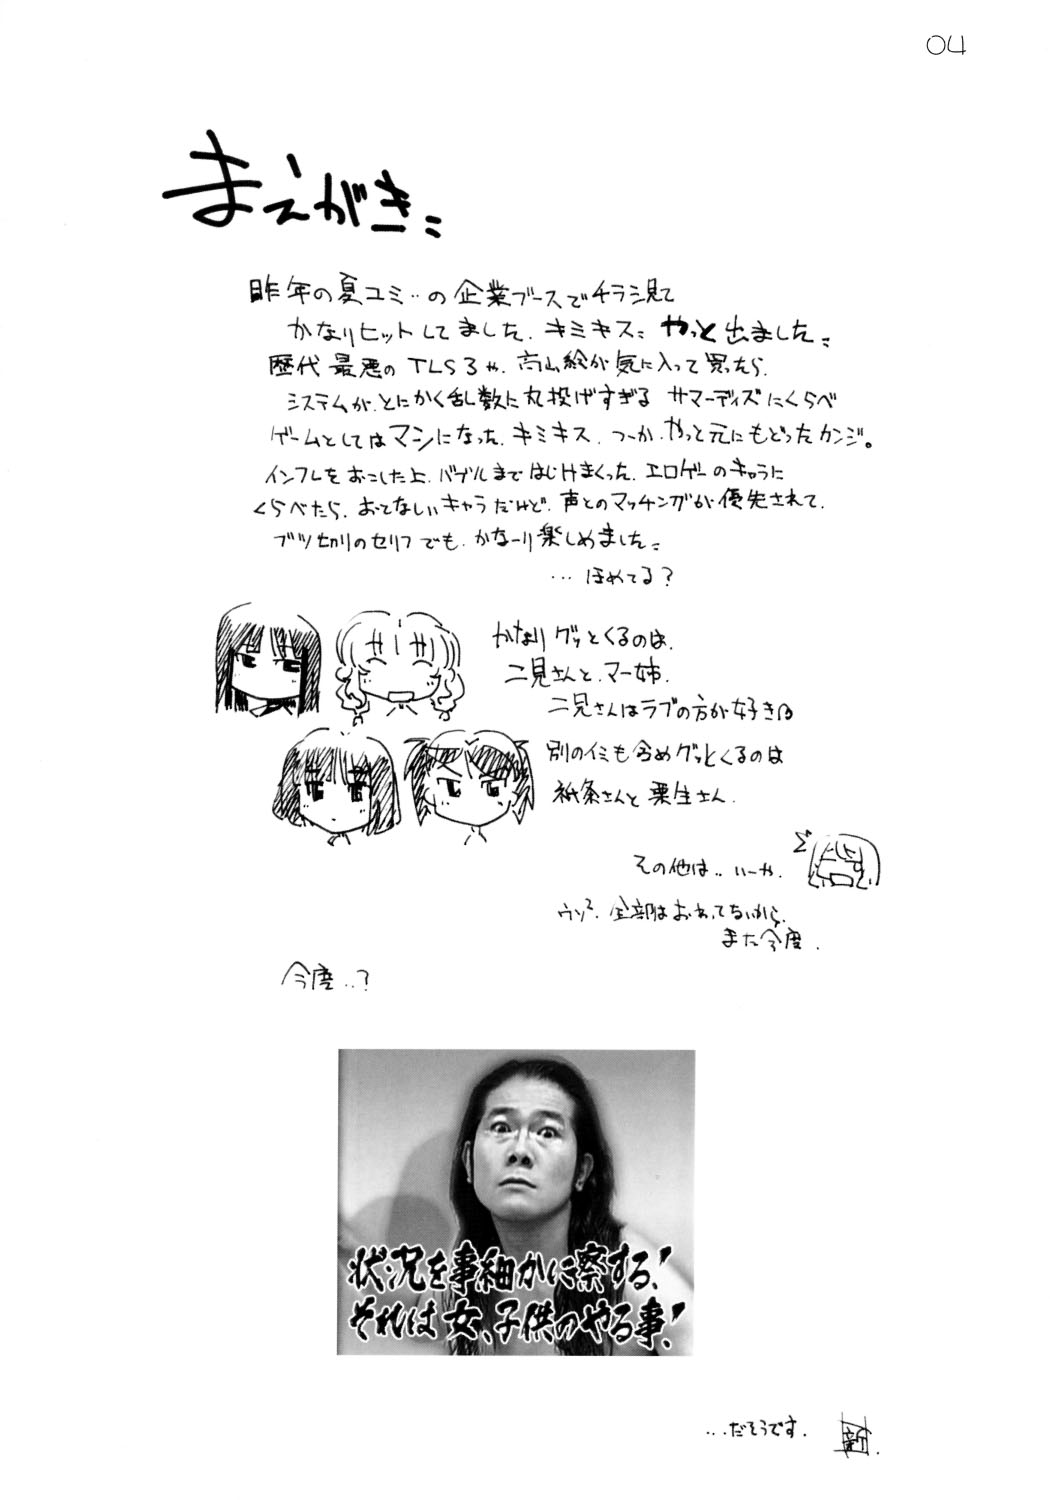 04
まえがき
昨年の夏コミ‥の企業ブースでチラシ見て
かなりヒットしてました。キミキス やっと出ました
歴代最悪のTLS3や、高山絵が気に入って買ったら、
システムが、とにかく乱数に丸投げすぎる サマーデイズにくらべ
ゲームとしてはマシになった、キミキス、つーか、やっと元にもどったカンジ。
インフレをおこした上、バブルまではじけまくった、エロゲーのキャラに
くらべたら、おとなしいキャラだけど、声とのマッチングが優先されて、
ブツ切りのセリフでも、かなーり楽しめました
…ほめてる？
かなりグッとくるのは、
二見さんと、マー姉、
二見さんはラブの方が好き
別のイミも含めグッとくるのは
祇条さんと栗生さん、
その他は‥いーや、
ウソ²、全部はおわってないから、
また今度、
今度‥？
状況を事細かに察する！
それは女、子供のやる事！
…だそうです。
新